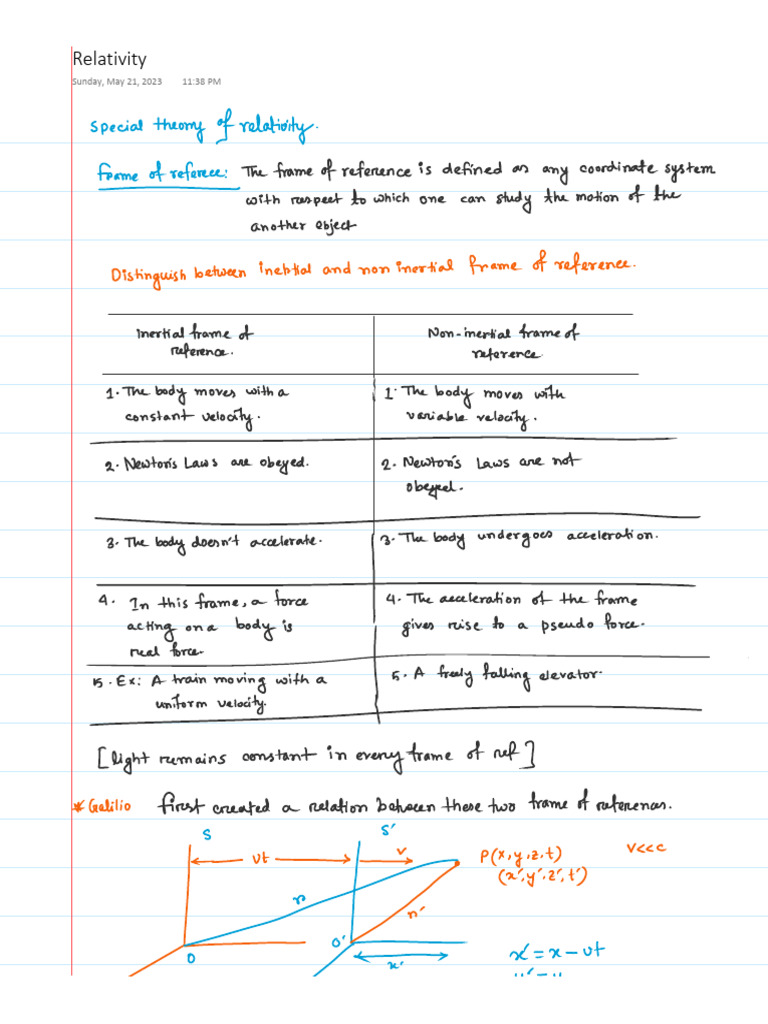 Relativity
Sunday, May 21, 2023 11:38 PM
special theory of relativity.
frame of referece: The frame of reference is defined as any coordinate system
with respect to which one can study the motion of the
another object
Distinguish between inertial and non inertial frame of reference.
Inertial frame of
reference.
Non-inertial frame of
reference
1. The body moves with a
constant velocity.
1. The body moves with
variable velocity.
2. Newton's Laws are obeyed.
2. Newton's Laws are not
obeyed.
3. The body doesn't accelerate.
3. The body undergoes acceleration.
4. In this frame, a force
acting on a body is
real force.
4. The acceleration of the frame
gives rise to a pseudo force.
5. Ex: A train moving with a
uniform velocity.
5. A freely falling elevator.
[light remains constant in every frame of ref]
* Galilio first created a relation between these two frame of references.
S
S'
vt
v
P(x, y, z, t)
(x', y', z', t')
v<<c
r
r'
O
O'
x'
x' = x - vt